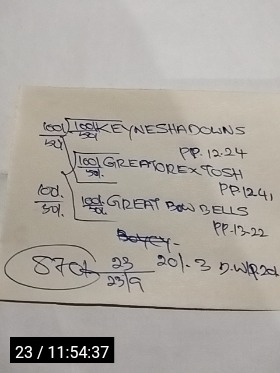 100/. 100/. KEYNESHADOWNS
50/. 50/.
PP-12.24
100/. GREATOREXTOSH
50/.
PP1241
100/. 100/. GREAT BOW BELLS
50/. 50/.
PP-13-22
870/- 23 20/-3
23/9
23 / 11:54:37